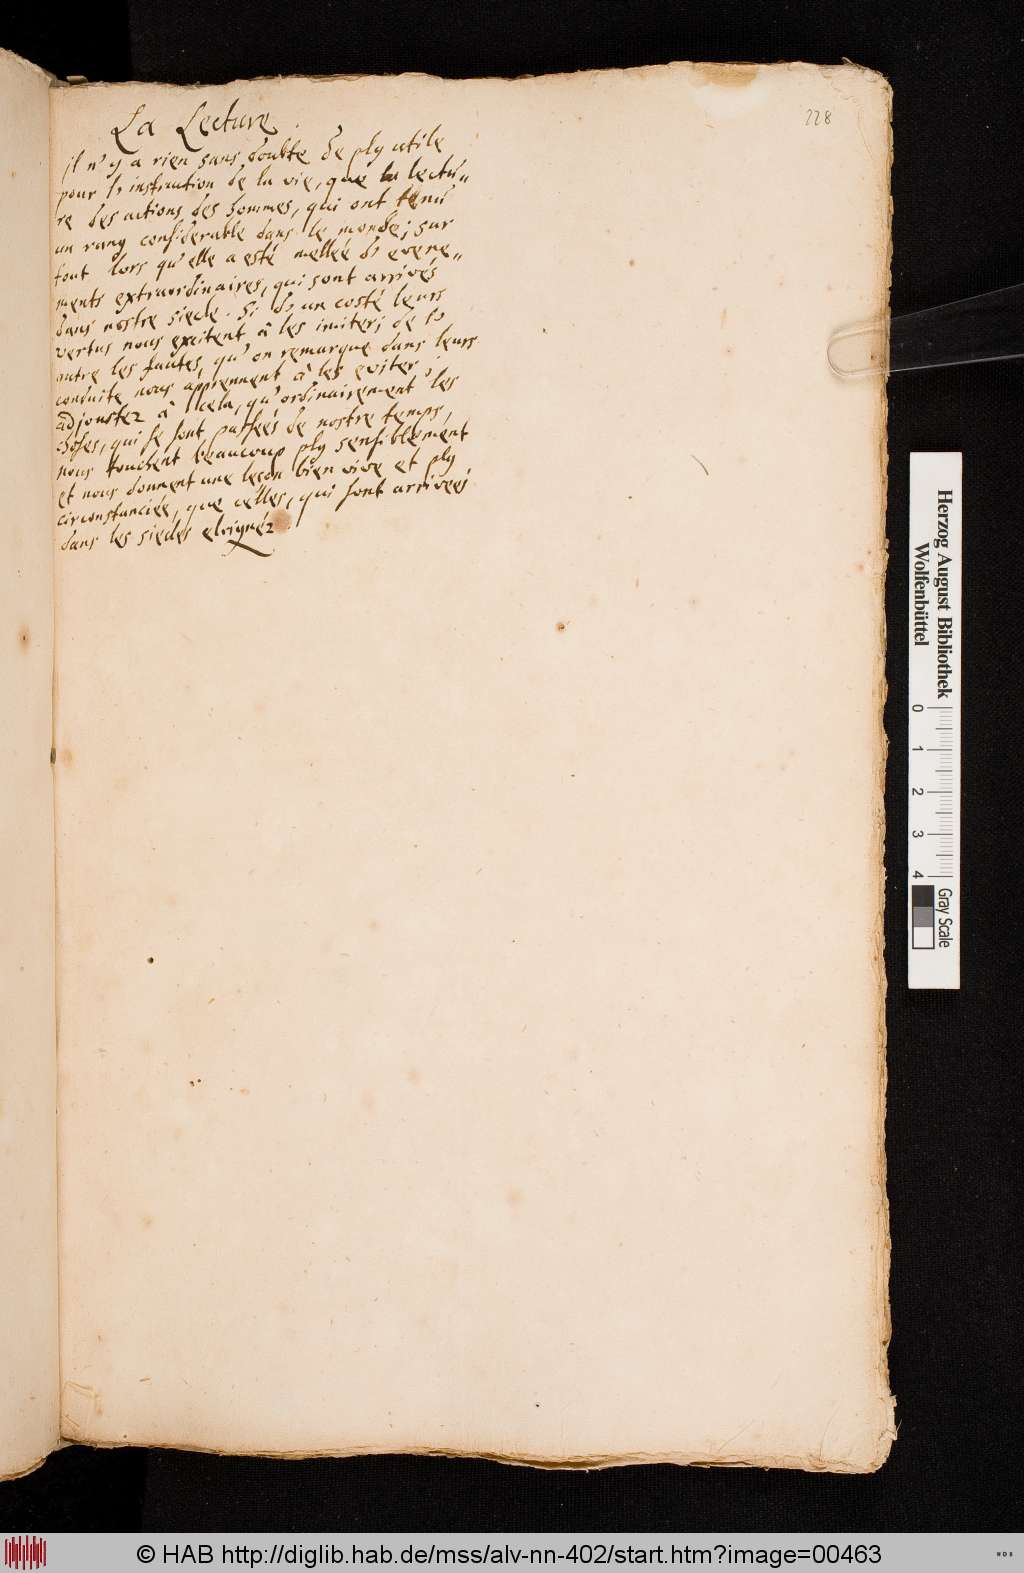 228
La Lecture.
il n'y a rien sans doubte de plus utile
pour l'instruction de la vie, que la lectu„
re des actions des hommes, qui ont tenu
un rang considerable dans le monde; sur
tout lors qu'elle a esté mellée d'evene„
ments extraordinaires, qui sont arrivés
dans nostre siecle. Si d'un costé leurs
vertus nous excitent â les imiter; de l'
autre les fautes, qu'on remarque dans leurs
conduite nous apprennent â les eviter;
adjoustez â cela, qu'ordinairement les
choses, qui se sont passées de nostre temps,
nous touchent beaucoup plus sensiblement
et nous donnent une leçon bien vive et plus
circonstanciée, que celles, qui sont arrivées
dans les siecles eloignéz.
Herzog August Bibliothek
Wolfenbüttel
0 1 2 3 4
Gray Scale
© HAB http://diglib.hab.de/mss/alv-nn-402/start.htm?image=00463